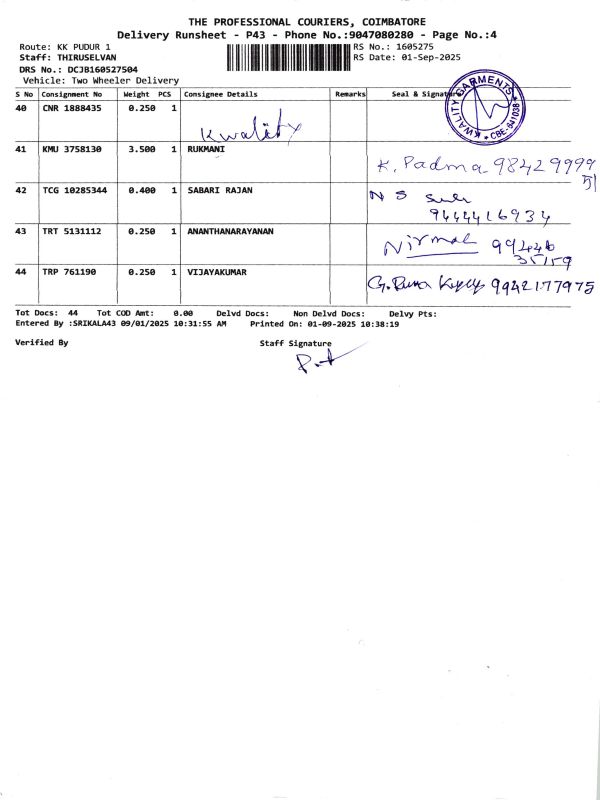 THE PROFESSIONAL COURIERS, COIMBATORE
Delivery Runsheet - P43 - Phone No.:9047080280 - Page No.:4
Route: KK PUDUR 1 RS No.: 1605275
Staff: THIRUSELVAN RS Date: 01-Sep-2025
DRS No.: DCJB160527504
Vehicle: Two Wheeler Delivery
S No Consignment No Weight PCS Consignee Details Remarks Seal & Signature
40 CNR 1888435 0.250 1
Kwality
KWALITY GARMENTS * CBE-641038 *
41 KMU 3758130 3.500 1 RUKMANI
K. Padma 98429999
51
42 TCG 10285344 0.400 1 SABARI RAJAN
N S
9444416934
43 TRT 5131112 0.250 1 ANANTHANARAYANAN
Nirmal 99446
35159
44 TRP 761190 0.250 1 VIJAYAKUMAR
G. 9942177975
Tot Docs: 44 Tot COD Amt: 0.00 Delvd Docs: Non Delvd Docs: Delvy Pts:
Entered By :SRIKALA43 09/01/2025 10:31:55 AM Printed On: 01-09-2025 10:38:19
Verified By Staff Signature